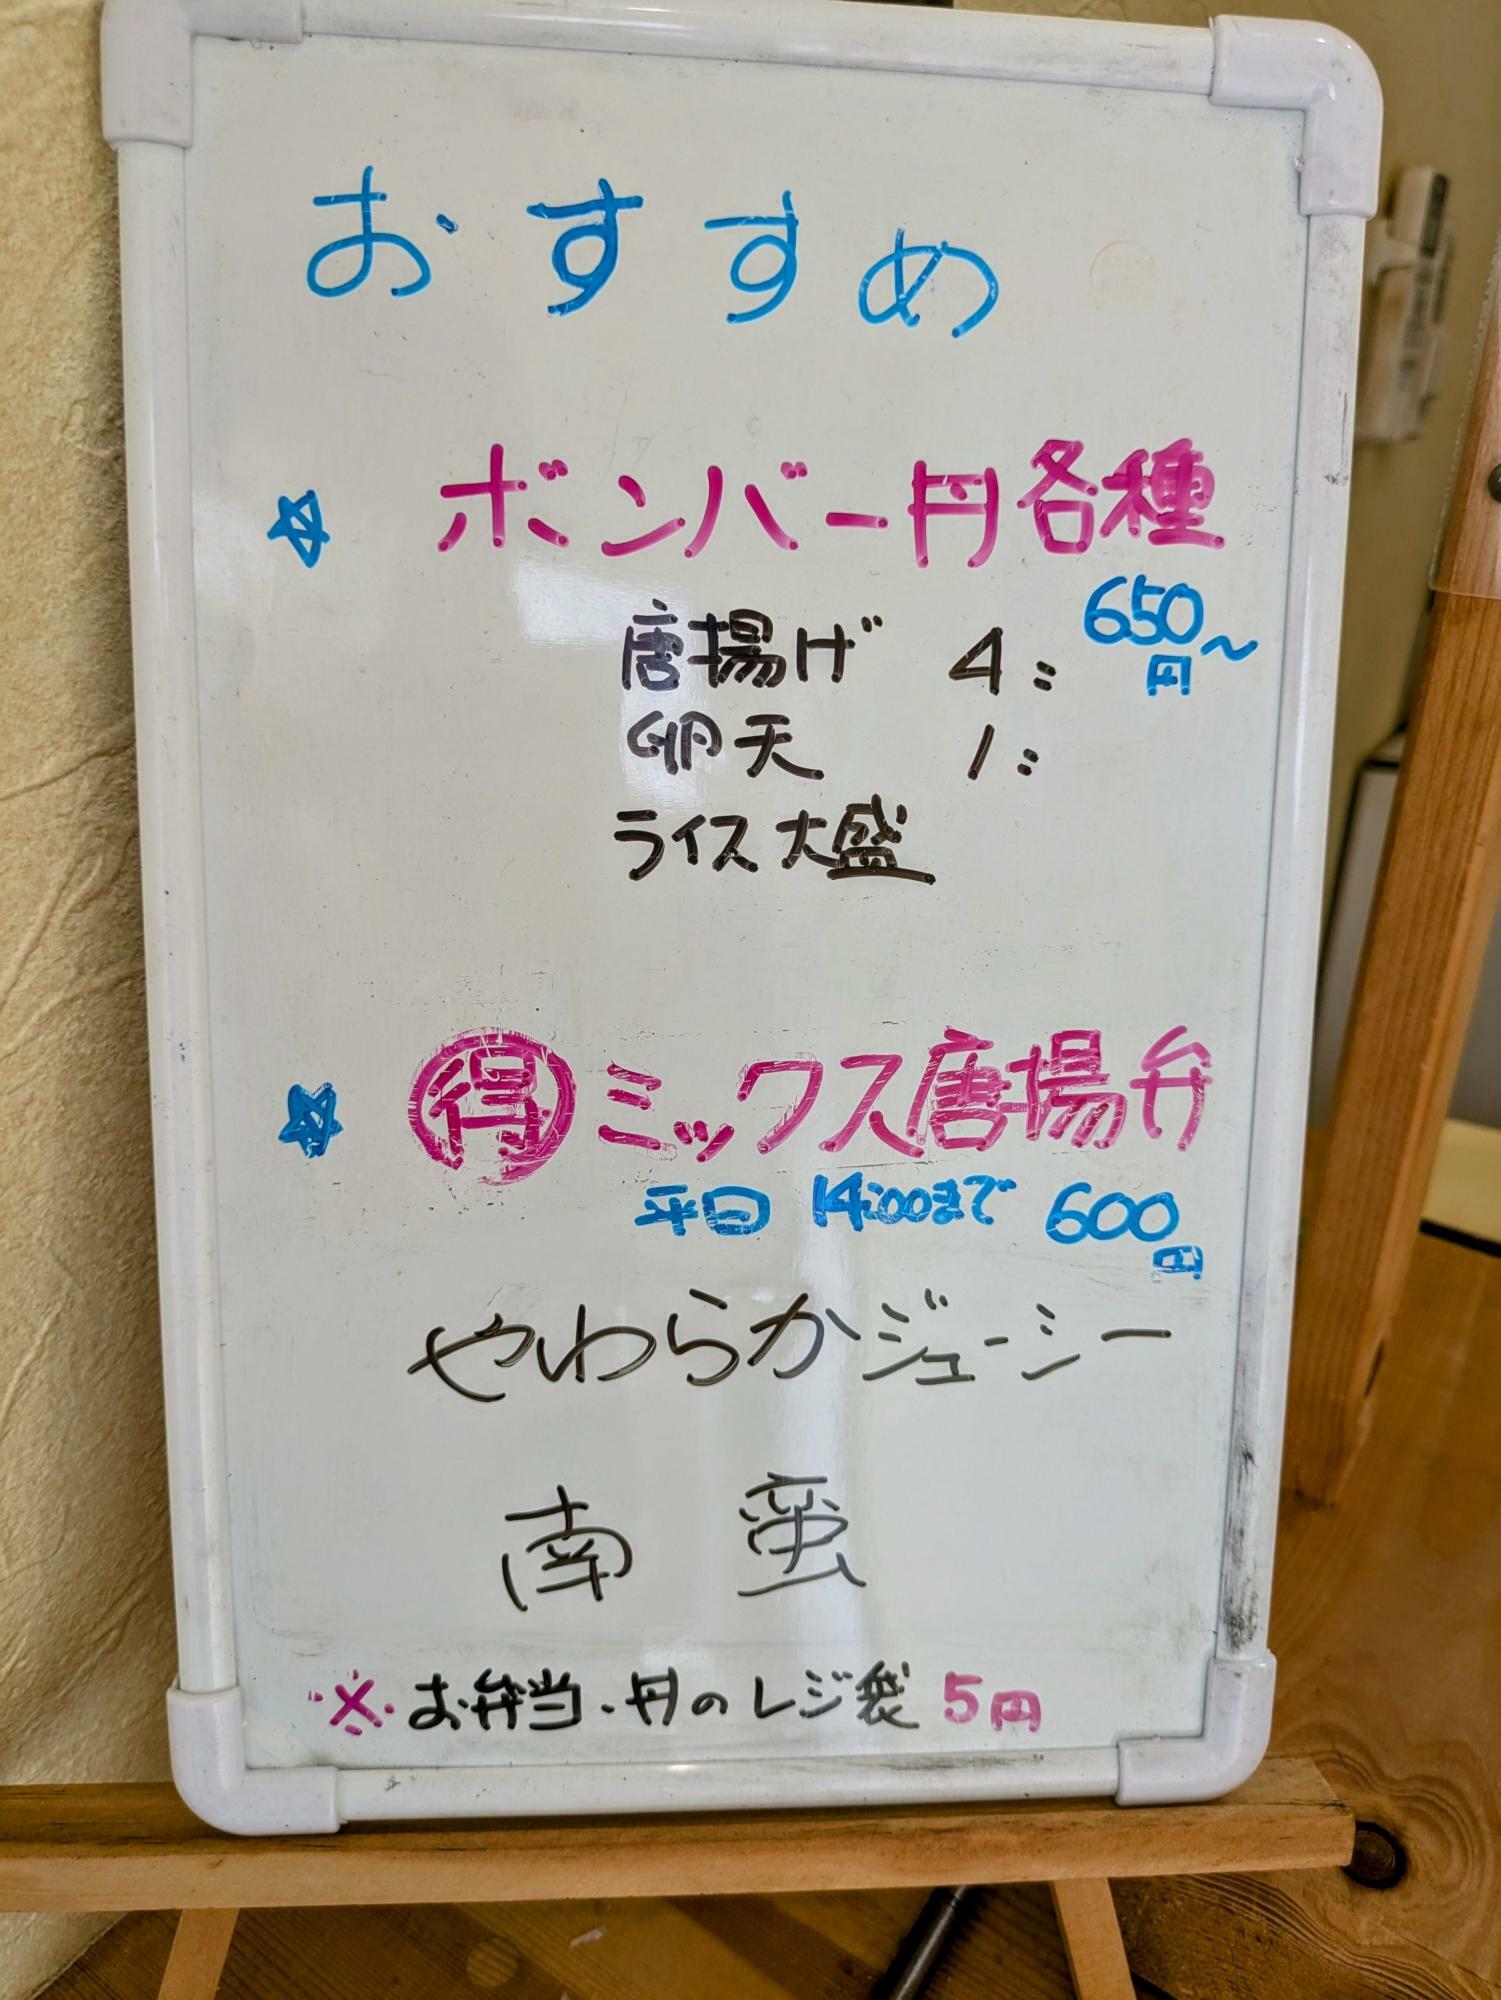 おすすめ
☆ ボンバー丼各種
650円〜
唐揚げ 4コ
卵天 1コ
ライス大盛
☆ 得 ミックス唐揚弁
平日 14:00まで 600円
やわらかジューシー
南蛮
※お弁当・丼のレジ袋 5円